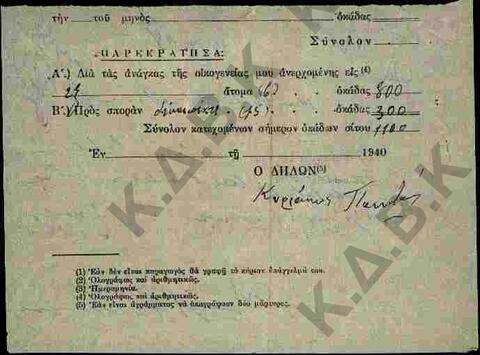 τὴν τοῦ μηνὸς ὀκάδας
Σύνολον
ΠΑΡΕΚΡΑΤΗΣΑ:
Α'.) Διὰ τὰς ἀνάγκας τῆς οἰκογενείας μου ἀνερχομένης εἰς (4)
ἄτομα (6) ὀκάδας 800
Β'.) Πρὸς σπορὰν (15) ὀκάδας 300
Σύνολον κατεχομένων σήμερον ὀκάδων σίτου 1100
Ἐν τῇ 1940
Ο ΔΗΛΩΝ (5)
Κυριάκος
(1) Ἐὰν δὲν εἶναι παραγωγὸς θὰ γραφῇ τὸ κύριον ἐπάγγελμά του.
(2) Ὁλογράφως καὶ ἀριθμητικῶς.
(3) Ἡμερομηνία.
(4) Ὁλογράφως καὶ ἀριθμητικῶς.
(5) Ἐὰν εἶναι ἀγράμματος νὰ ὑπογράψουν δύο μάρτυρες.
Κ.Δ.Β.Κ
Κ.Δ.Β.Κ